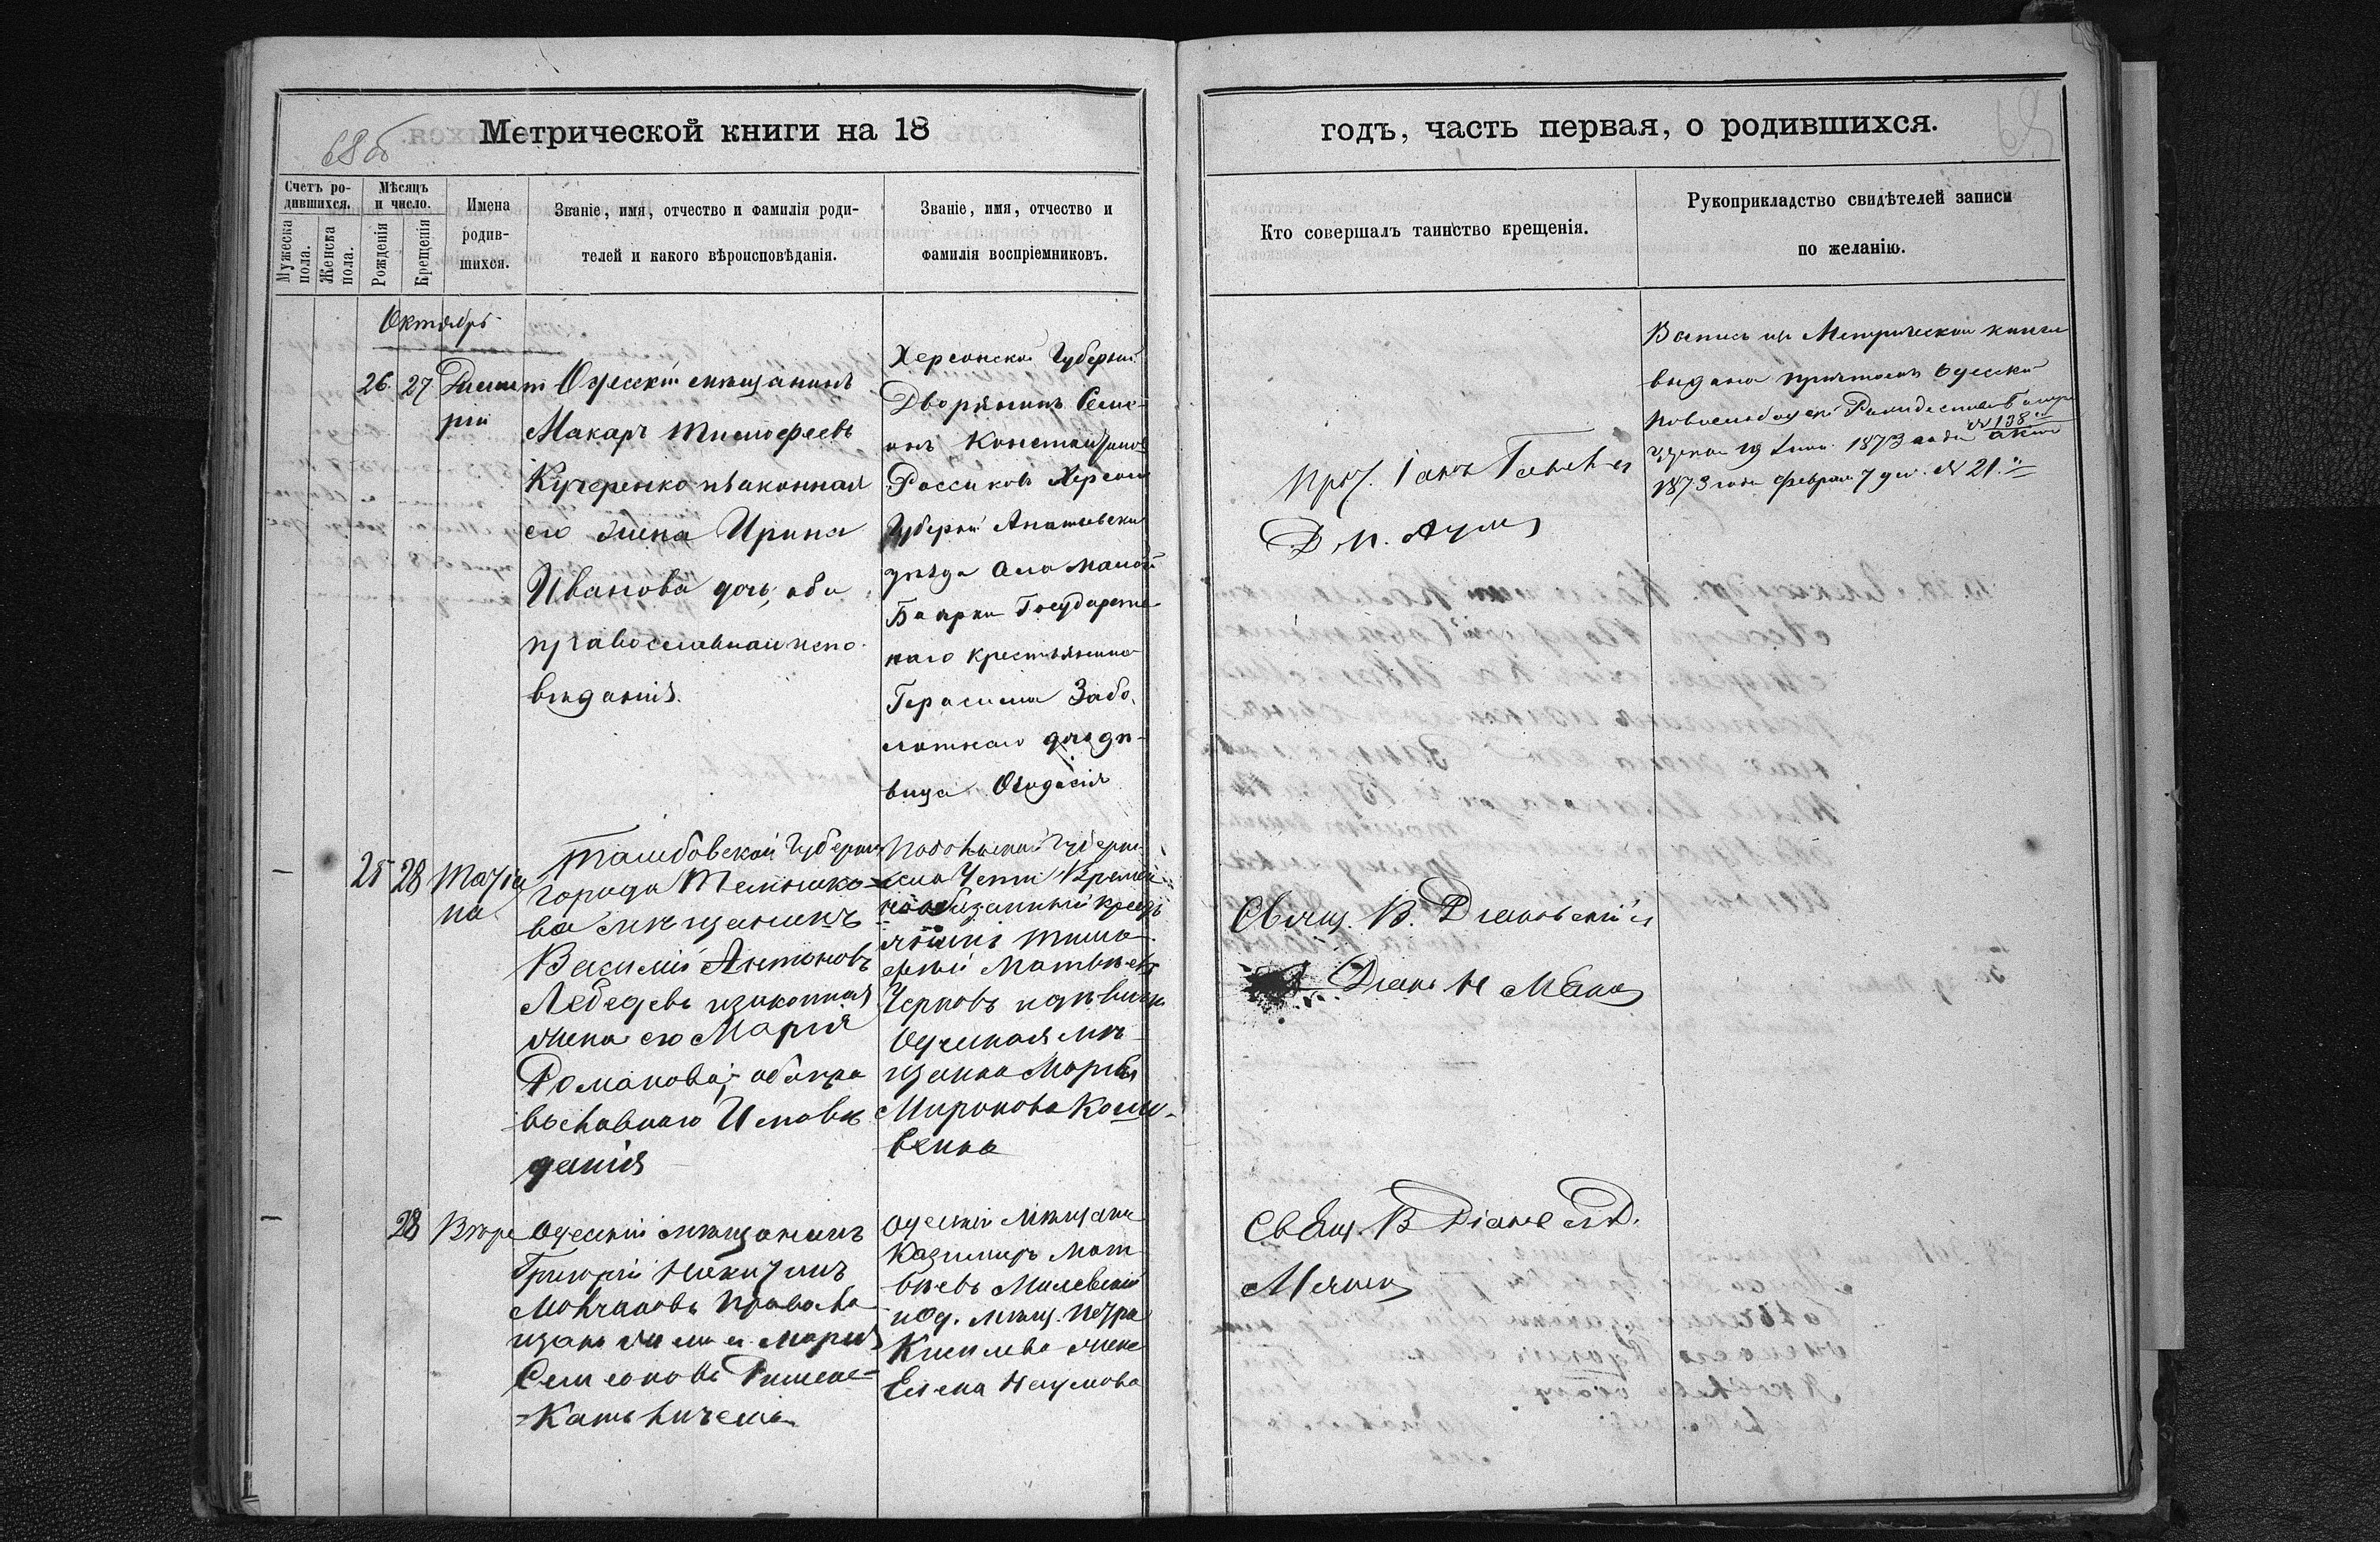 68 об
Метрической книги на 18
Счетъ ро-
дившихся.
Мужеска
пола.
Женска
пола.
Мѣсяцъ
и число.
Рожденія
Крещенія
Имена
родив-
шихся.
Званіе, имя, отчество и фамилія роди-
телей и какого вѣроисповѣданія.
Званіе, имя, отчество и
фамилія воспріемниковъ.
Октябрь
26. 27. Димит
рій
Одесскій мѣщанинъ
Макаръ Тимофеевъ
Кучеренко и законная
его жена Ирина
Иванова дочь, оба
православнаго испо-
вѣданія.
Херсонской Губерніи
Дворянинъ Семе-
онъ Константинов
Россиковъ Херсон
Губерніи Ананьевска
уѣзда села Малой
Боярки Государстве
наго крестьянина
Герасима Забо-
лотнаго дочь дѣ-
вица Феодосія
25 28 Татіа
на
Тамбовской Губерніи
города Темнико-
ва мѣщанинъ
Василій Антоновъ
Лебедевъ и законная
жена его Марія
Романова; оба пра
вославнаго Исповѣ
данія
Подольской Губерніи
села Временно
обязанный крест
янинъ Тимо
фѣй Матвѣевъ
Черновъ и дѣвица
Одесская мѣ
щанка Марѳа
Миронова
28 Вѣра
Одесскій мѣщанинъ
Григорій Никитинъ
Молчановъ Правосла
и зак жена Марія
Семеонова Римско-
-Католическ
Одесскій Мѣщани
Казимиръ Мат
вѣевъ Милевскій
и Од. мѣщ. Петра
Киселева жена
Елена Наумова
годъ, часть первая, о родившихся.
69
Кто совершалъ таинство крещенія.
Рукоприкладство свидѣтелей записи
по желанію.
Выпись изъ Метрической книги
выдана причтомъ Одесской
Новослободской Рождество Богор
церкви 19 1873 года № 138
1873 года Февраля 7 дня. № 21.
Свящ. В. Діановскій
Свящ. В